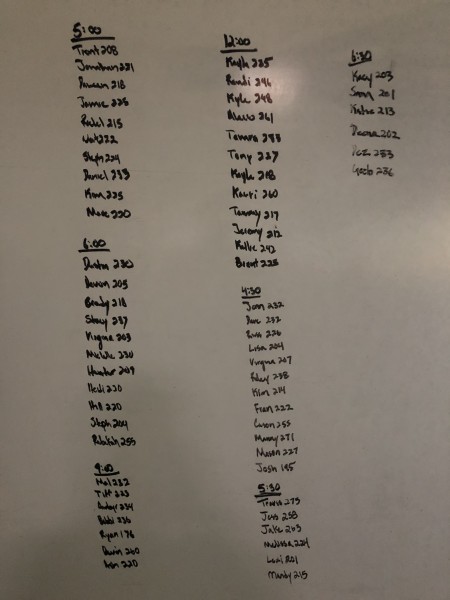 5:00
Trent 208
Jonathan 221
218
Jamie 225
Rachel 215
222
Steph 224
Daniel 233
Kim 225
220
6:00
Dustin 230
Devon 205
Brady 218
Stacy 237
Virginia 203
Michelle 230
Hunter 209
Heidi 220
Hill 220
Steph 204
Rebekah 255
9:00
Mal 232
Tiff 223
234
Bobbi 236
Ryan 176
240
220
12:00
Kayla 225
Randi 246
Kyle 248
261
Tamara
Tony 237
Kayla 218
260
Tammy 217
Jeremy 212
Kallie 242
Brent 225
4:30
232
Dave 232
226
Lisa 204
Virginia 207
Haley 238
Kim 214
Fran 222
Carson 255
Manny 271
Mason 227
Josh 195
5:30
Travis 273
Jess 258
Jake 263
Melissa 224
Lexi 201
Mandy 215
6:30
Kacy 203
201
Katie 213
Deena 202
236